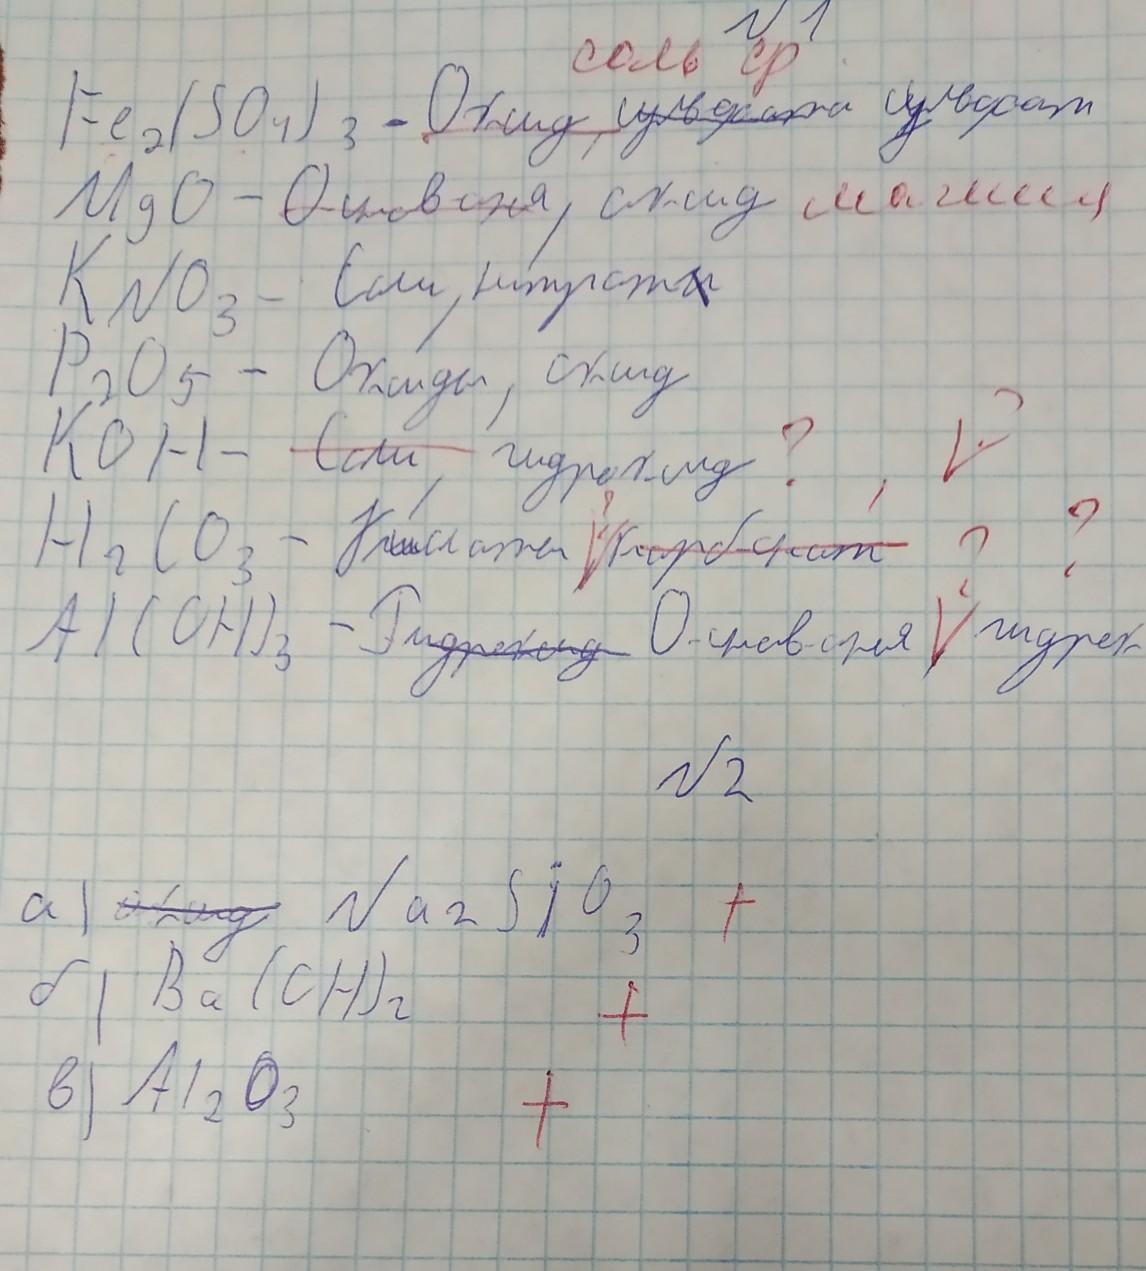 √1
соль ср.
Fe2(SO4)3 - Оксид, сульфата сульфат
MgO - Основания, оксид магния
KNO3 - Соли, нитраты
P2O5 - Оксиды, оксид
KOH - Соли, гидроксид ? , V ?
H2CO3 - Кислоты V карбонат ? ?
Al(OH)3 - Гидроксид Основания V гидрок
√2
а) оксид Na2SiO3 +
б) Ba(OH)2 +
в) Al2O3 +